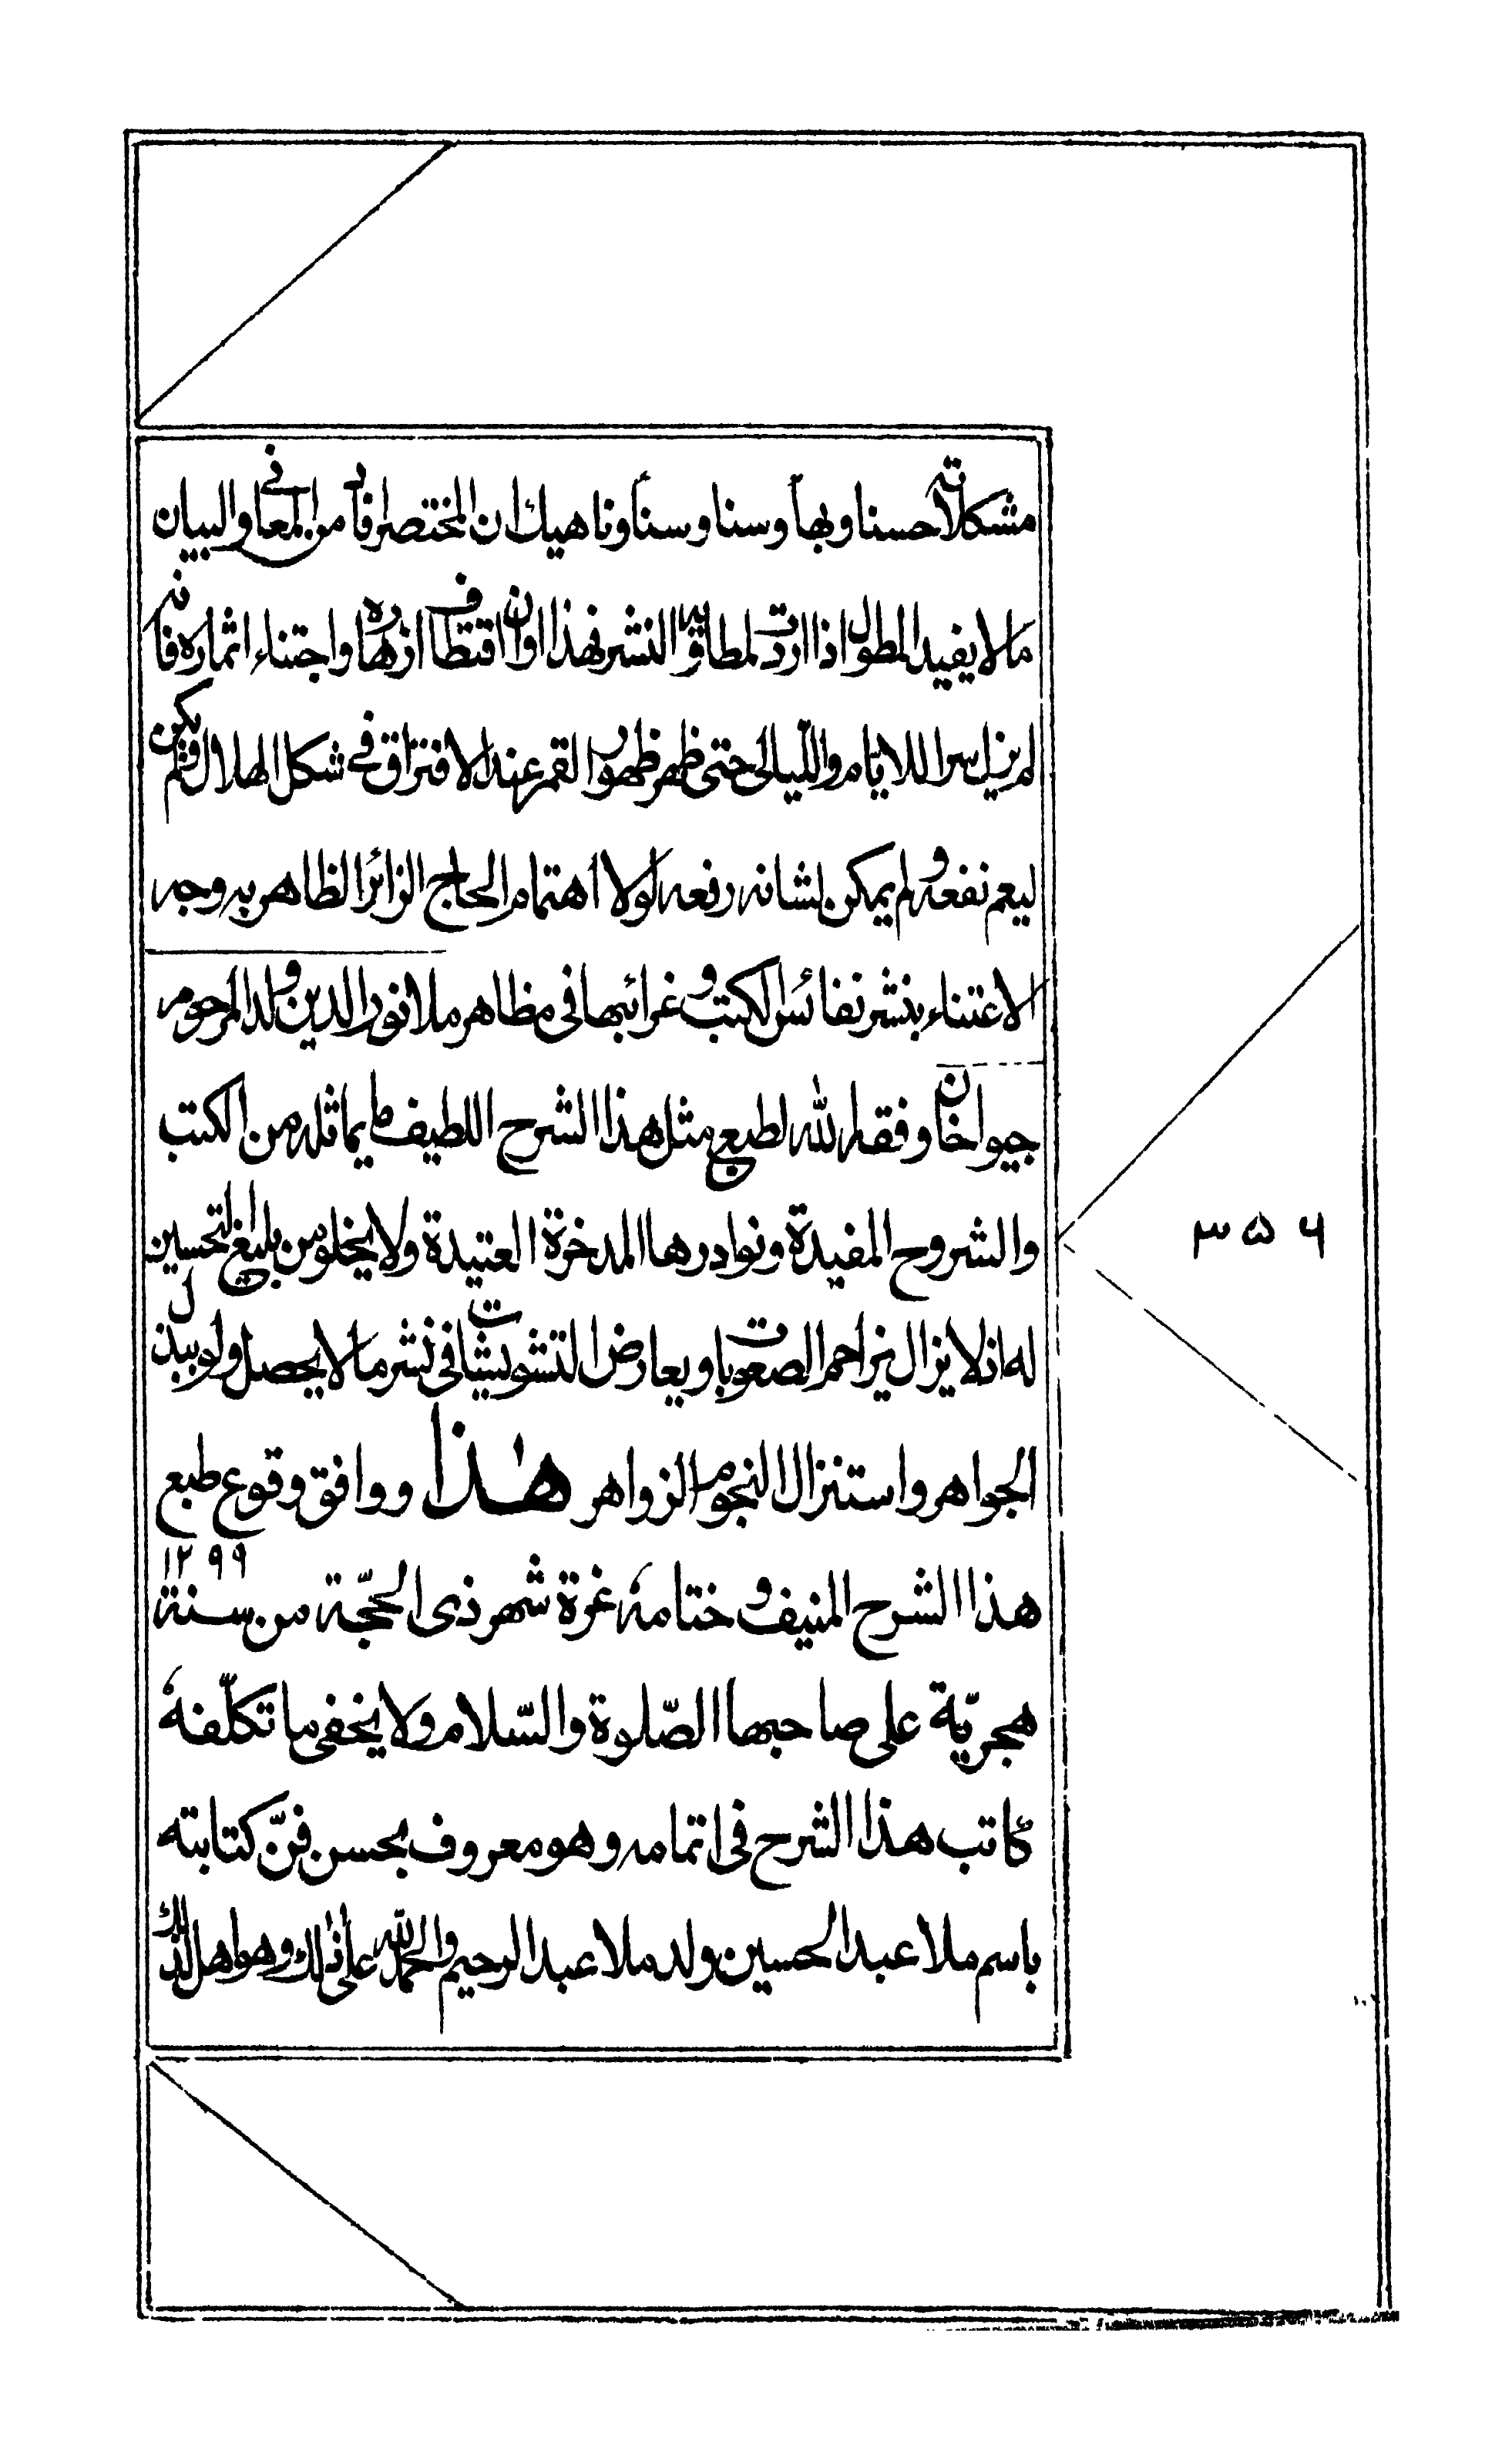 مشكلاته حسنا وبهاً وسنا وسناً وناهيك ان المختصر افاد من المعانى والبيان
ما لا يفيد المطول اذا اردت لمطاويه النشر فهذا اوان اقتطاف ازهاره واجتناء اثماره فانه
لم يزل سرا للايام والليالى حتى ظهر ظهور القمر عند الافتراق فى شكل الهلال فلم يكن
ليعم نفعه ولم يمكن لشانه رفعه لولا اهتمام الحاج الزائر الظاهر به وجه
الاعتناء بنشر نفائس الكتب وغرائبها فى مظاهر ملا نور الدين ولد المرحوم
جيواخان وفقه الله لطبع مثل هذا الشرح اللطيف ما يماثله من الكتب
والشروح المفيدة ونوادرها المدخرة العتيدة ولا يخلو من بليغ التحسين
له اذ لا يزال يزاحم الصعوبات ويعارض التشويشات فى نشر ما لا يحصل ولو ببذل
الجواهر واستنزال النجوم الزواهر هذا ووافق وقوع طبع
هذا الشرح المنيف وختامه غرة شهر ذى الحجّة من سنة ١٢٩٩
هجريّة على صاحبها الصّلوة والسّلام ولا يخفى ما تكلّفه
كاتب هذا الشرح فى اتمامه وهو معروف بحسن فنّ كتابته
باسم ملا عبد الحسين ولد ملا عبد الرحيم والحمد لله على ذلك وهو اهل لذلك
٣٥٦